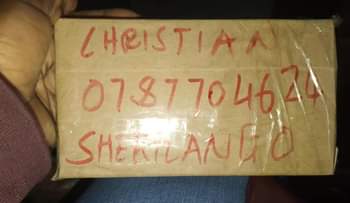 CHRISTIAN
0787704624
SHERILANGO